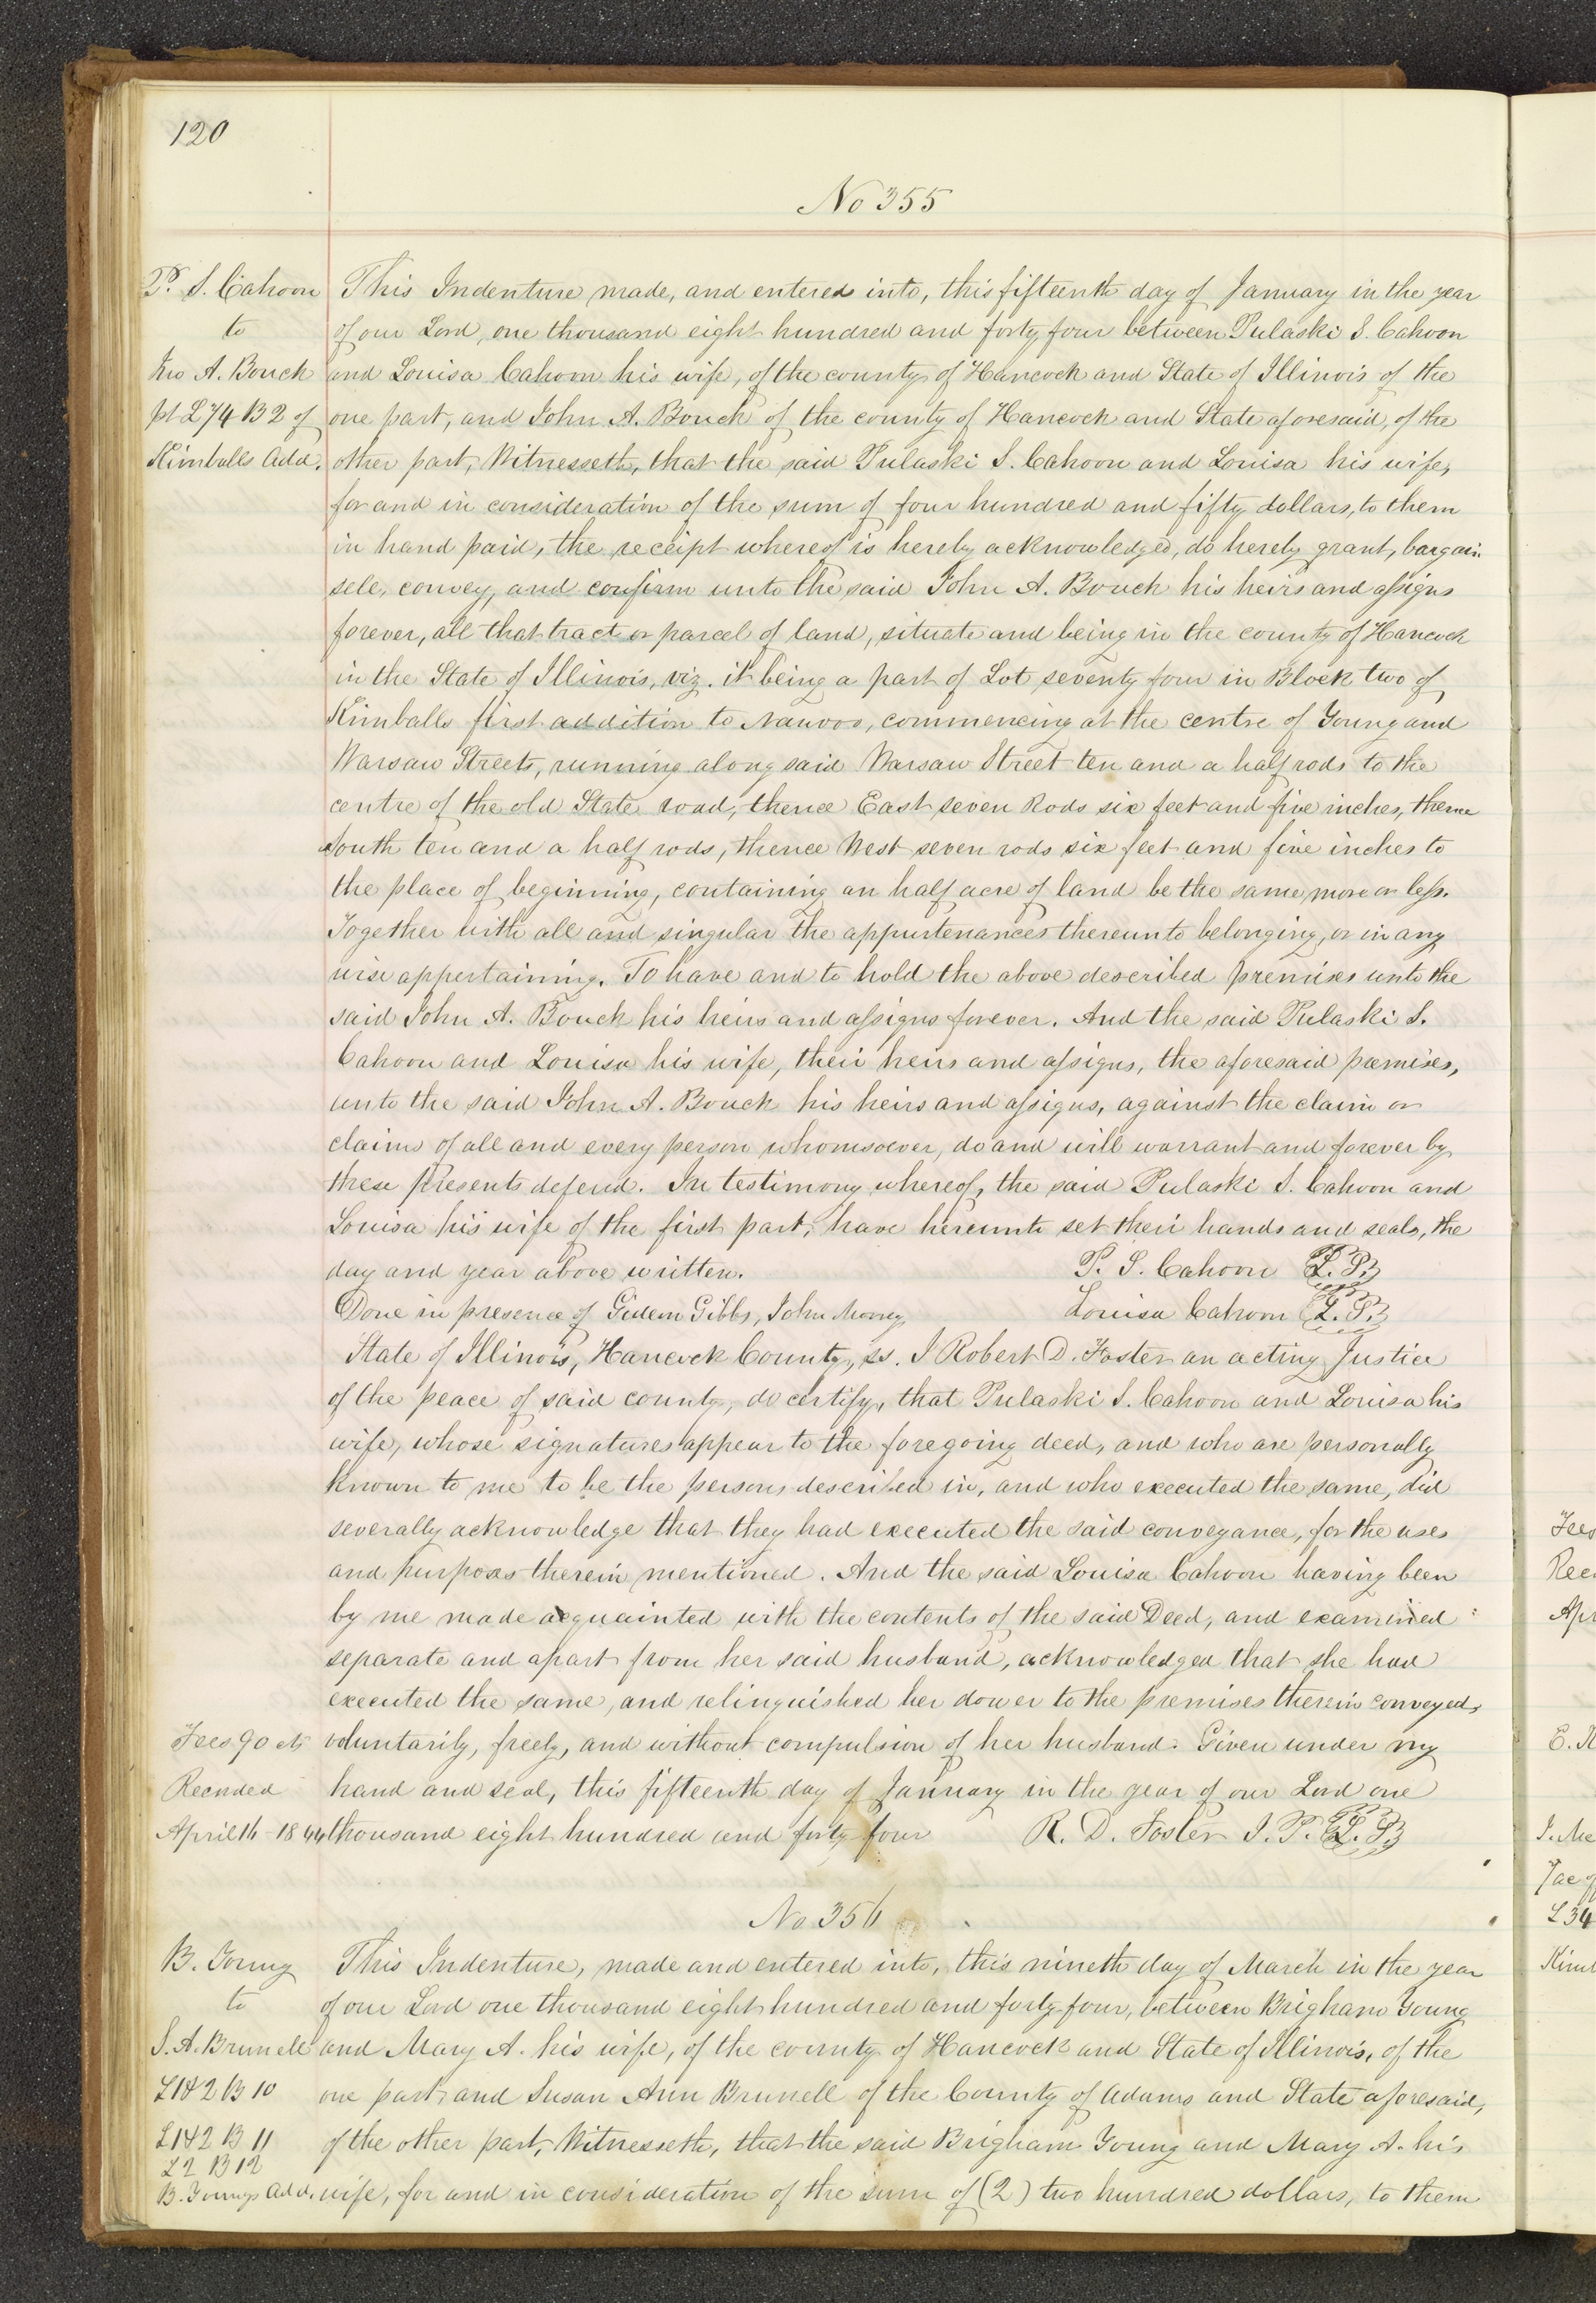 120
No 355
P. S. Cahoon
to
Jno A. Bouck
pt L 74 B 2 of
Kimballs Add.
This Indenture made, and entered into, this fifteenth day of January in the year
of our Lord, one thousand eight hundred and forty four between Pulaski S. Cahoon
and Louisa Cahoon his wife, of the county of Hancock and State of Illinois of the
one part, and John A. Bouck of the county of Hancock and State aforesaid, of the
other part, Witnesseth, that the said Pulaski S. Cahoon and Louisa his wife,
for and in consideration of the sum of four hundred and fifty dollars, to them
in hand paid, the receipt whereof is hereby acknowledged, do hereby grant, bargain
sell, convey, and confirm unto the said John A. Bouck his heirs and assigns
forever, all that tract or parcel of land, situate and being in the county of Hancock
in the State of Illinois, viz. it being a part of Lot seventy four in Block two of
Kimballs first addition to Nauvoo, commencing at the centre of Young and
Warsaw Streets, running along said Warsaw Street ten and a half rods to the
centre of the old State road, thence East seven Rods six feet and five inches, thence
South ten and a half rods, thence West seven rods six feet and five inches to
the place of beginning, containing an half acre of land be the same more or less.
Together with all and singular the appurtenances thereunto belonging, or in any
wise appertaining. To have and to hold the above described premises unto the
said John A. Bouck his heirs and assigns forever. And the said Pulaski S.
Cahoon and Louisa his wife, their heirs and assigns, the aforesaid premises,
unto the said John A. Bouck his heirs and assigns, against the claim or
claims of all and every person whomsoever, do and will warrant and forever by
these presents defend. In testimony whereof, the said Pulaski S. Cahoon and
Louisa his wife of the first part, have hereunto set their hands and seals, the
day and year above written. P. S. Cahoon L. S.
Done in presence of Gideon Gibbs, John Morey, Louisa Cahoon L. S.
State of Illinois, Hancock County, ss. I Robert D. Foster an acting Justice
of the peace of said county, do certify, that Pulaski S. Cahoon and Louisa his
wife, whose signatures appear to the foregoing deed, and who are personally
known to me to be the persons described in, and who executed the same, did
severally acknowledge that they had executed the said conveyance, for the uses
and purposes therein mentioned. And the said Louisa Cahoon having been
by me made acquainted with the contents of the said Deed, and examined
separate and apart from her said husband, acknowledged that she had
executed the same, and relinquished her dower to the premises therein conveyed,
voluntarily, freely, and without compulsion of her husband. Given under my
hand and seal, this fifteenth day of January in the year of our Lord one
thousand eight hundred and forty four R. D. Foster J. P. L. S.
Fees 90 cts
Recorded
April 16 - 1844
No 356
B. Young
to
S. A. Brunell
L 1 & 2 B 10
L 1 & 2 B 11
L 2 B 12
B. Youngs Add.
This Indenture, made and entered into, this nineth day of March in the year
of our Lord one thousand eight hundred and forty-four, between Brigham Young
and Mary A. his wife, of the county of Hancock and State of Illinois, of the
one part, and Susan Ann Brunell of the County of Adams and State aforesaid,
of the other part, Witnesseth, that the said Brigham Young and Mary A. his
wife, for and in consideration of the sum of (2) two hundred dollars, to them
Fees
Rec
Apr
L 34